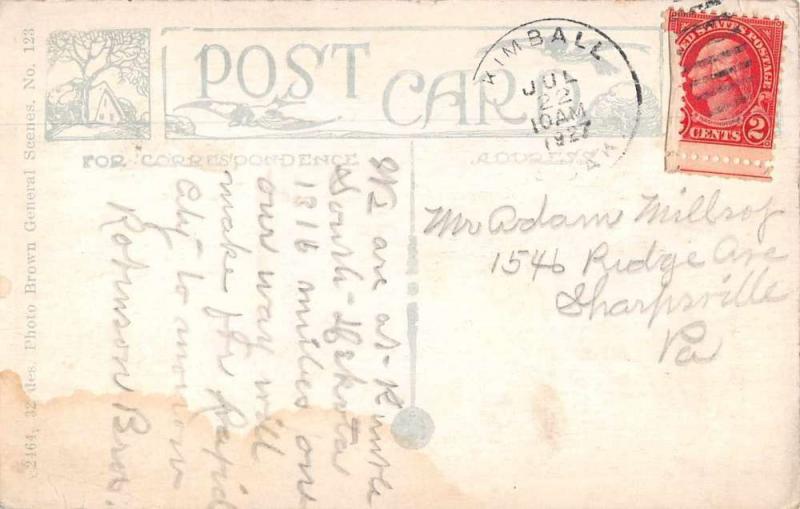 POST CARD
FOR CORRESPONDENCE
ADDRESS
KIMBALL
JUL
22
10 AM
1927
UNITED STATES POSTAGE
2 CENTS 2
We are at Kimble
South-Dakota
1816 miles one
our way will
make for Rapid
City to morrow
Robinson Bros.
Mr Adam Millsop
1546 Ridge Ave
Sharpsville
Pa
C2464, 32 des. Photo Brown General Scenes. No. 123